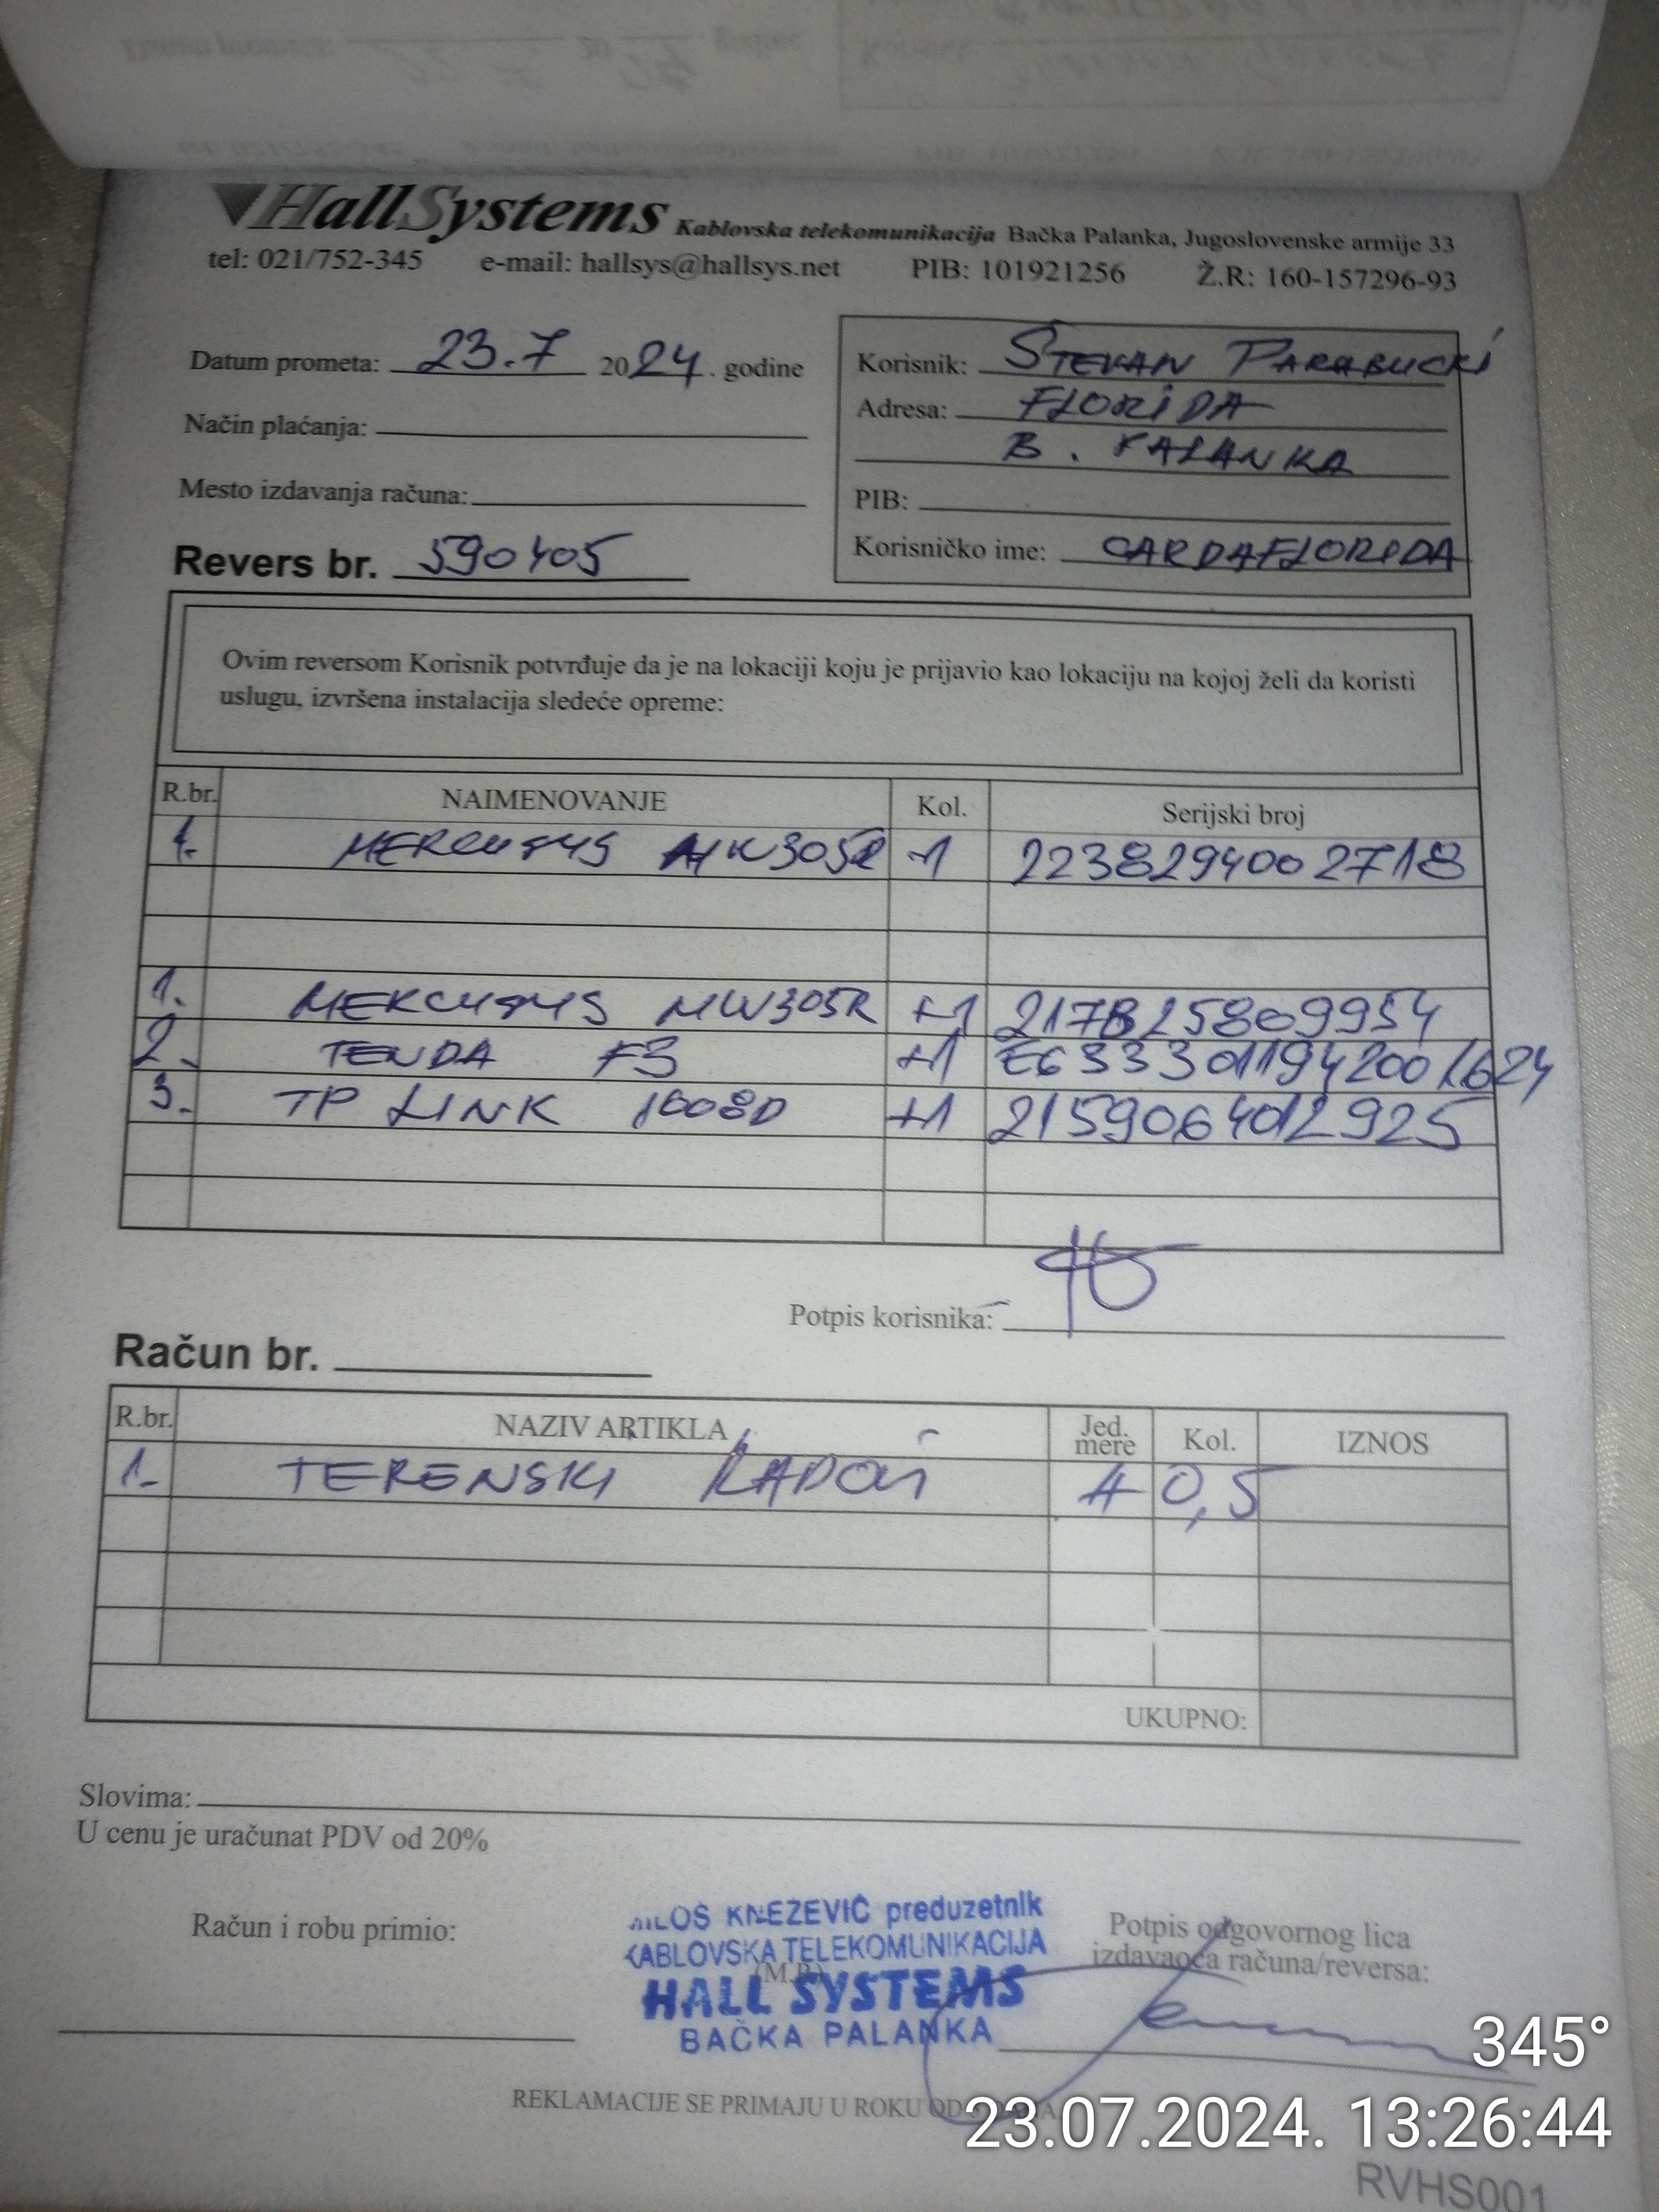 HallSystems Kablovska telekomunikacija Bačka Palanka, Jugoslovenske armije 33
tel: 021/752-345 e-mail: hallsys@hallsys.net PIB: 101921256 Ž.R: 160-157296-93
Datum prometa: 23.7 2024. godine
Način plaćanja:
Mesto izdavanja računa:
Revers br. 590405
Korisnik: STEVAN PARABUCKI
Adresa: FLORIDA
B. PALANKA
PIB:
Korisničko ime: CARDAFLORIDA
Ovim reversom Korisnik potvrđuje da je na lokaciji koju je prijavio kao lokaciju na kojoj želi da koristi
uslugu, izvršena instalacija sledeće opreme:
R.br. NAIMENOVANJE Kol. Serijski broj
1. MERCUSYS MW305R -1 2238294002718
1. MERCUSYS MW305R +1 217B25809954
2. TENDA F3 +1 E6333011942001624
3. TP LINK 1008D +1 2159064012925
Potpis korisnika:
Račun br.
R.br. NAZIV ARTIKLA Jed. mere Kol. IZNOS
1. TERENSKI 0,5
UKUPNO:
Slovima:
U cenu je uračunat PDV od 20%
Račun i robu primio:
MILOŠ KNEZEVIĆ preduzetnik
KABLOVSKA TELEKOMUNIKACIJA
(M.P.)
HALL SYSTEMS
BAČKA PALANKA
Potpis odgovornog lica
izdavaoca računa/reversa:
REKLAMACIJE SE PRIMAJU U ROKU OD
345°
23.07.2024. 13:26:44
RVHS001